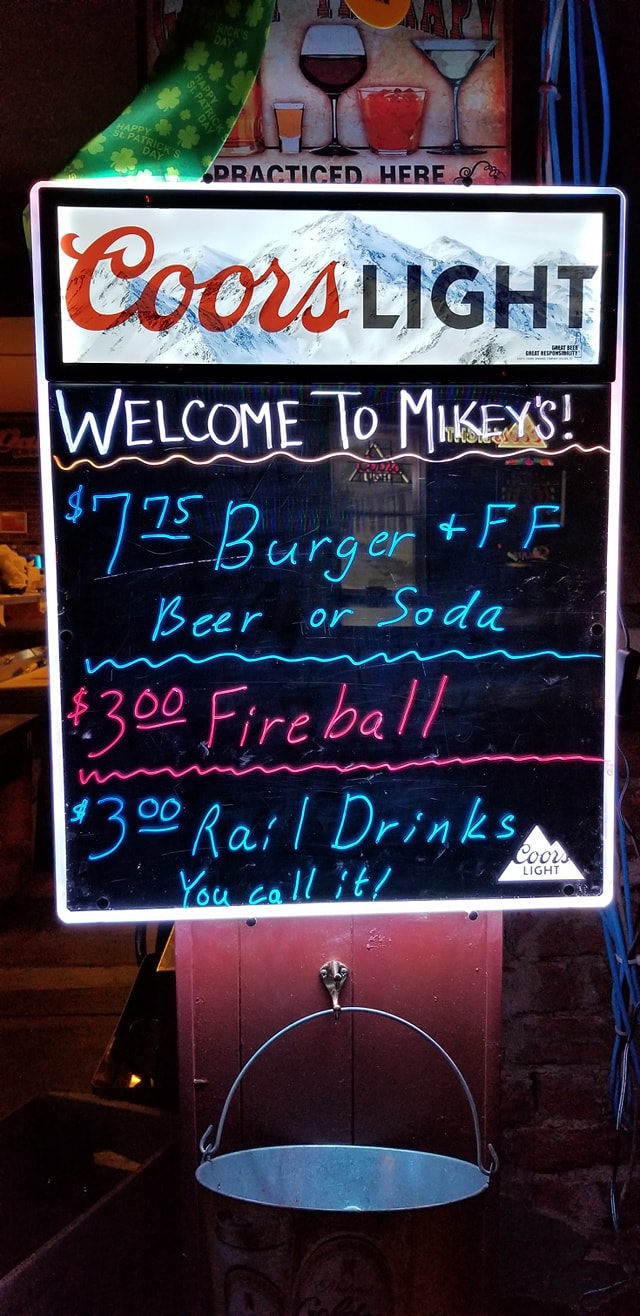 HAPPY
ST. PATRICK'S
DAY
PRACTICED HERE
Coors LIGHT
GREAT BEER
GREAT RESPONSIBILITY
WELCOME TO MIKEY'S!
$7 75 Burger + FF
Beer or Soda
$3 00 Fireball
$3 00 Rail Drinks
You call it!
Coors
LIGHT